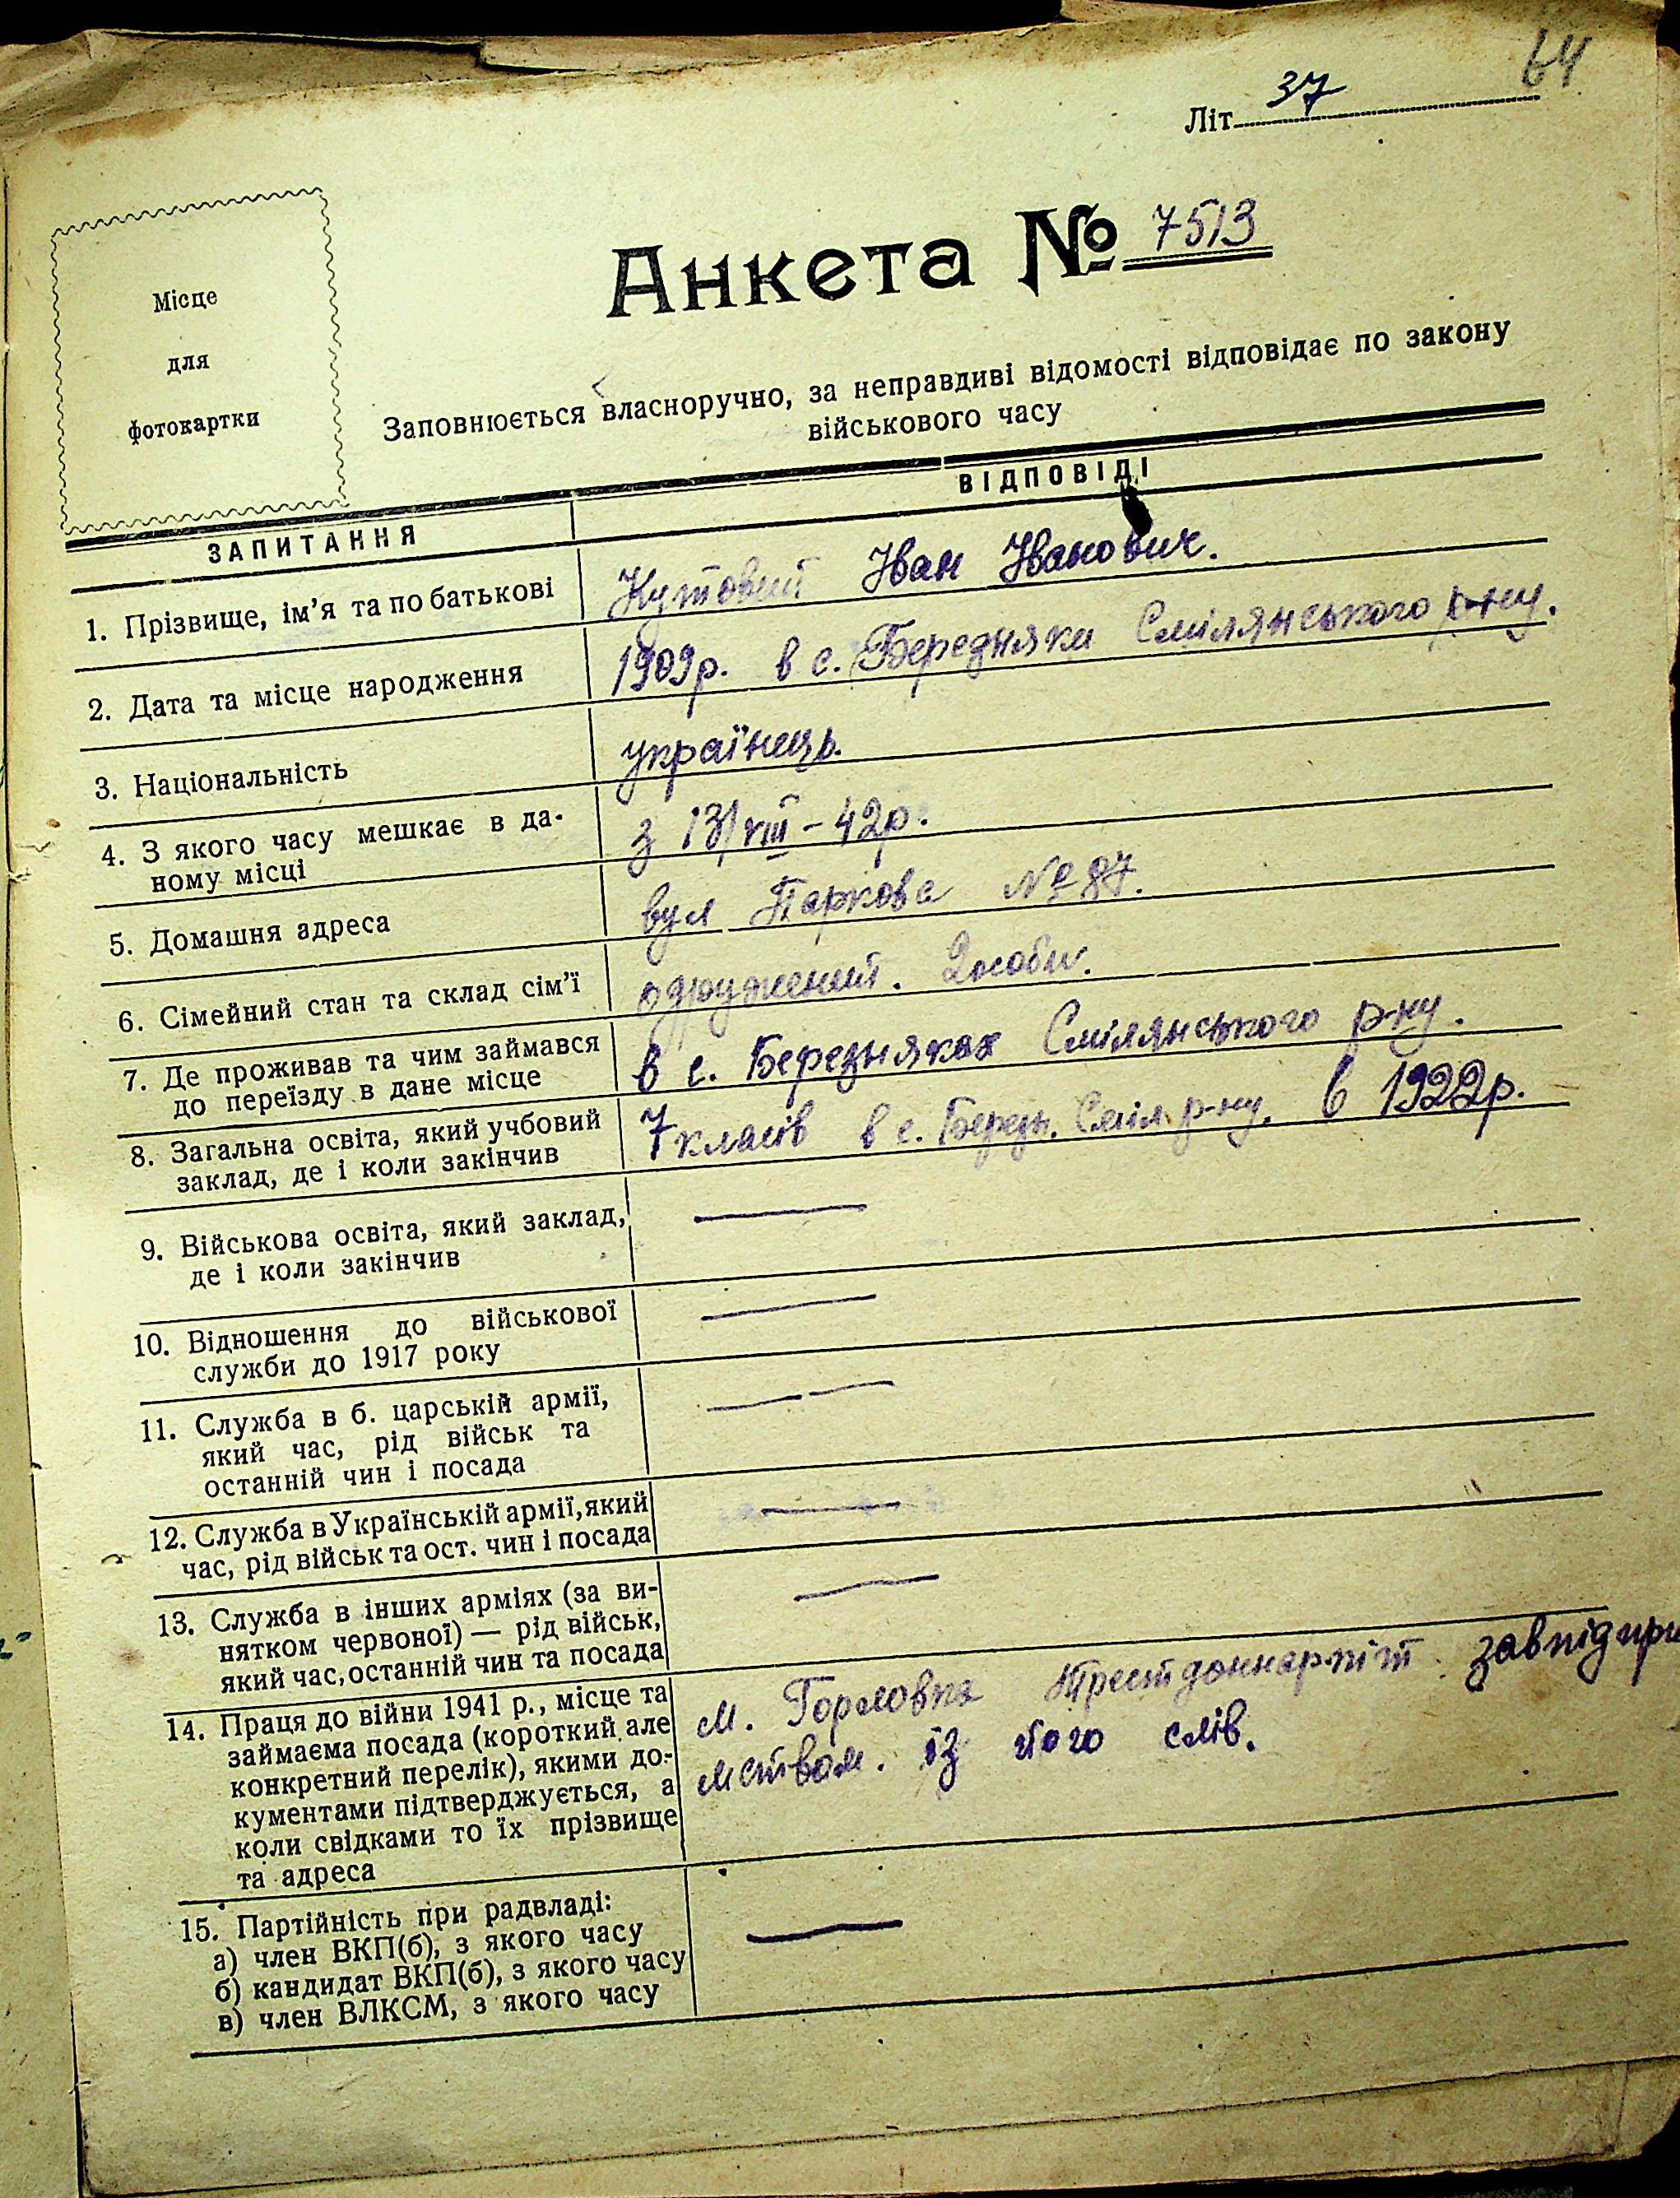 64
Літ 37
Місце
для
фотокартки
Анкета № 7513
Заповнюється власноручно, за неправдиві відомості відповідає по закону
військового часу
ЗАПИТАННЯ
ВІДПОВІДІ
1. Прізвище, ім'я та по батькові
Кутовий Іван Іванович.
2. Дата та місце народження
1909р. в с. Березняки Смілянського р-ну.
3. Національність
українець.
4. З якого часу мешкає в да-
ному місці
з 13/VIII-42р.
5. Домашня адреса
вул Паркова № 87.
6. Сімейний стан та склад сім'ї
одружений. 2 особи.
7. Де проживав та чим займався
до переїзду в дане місце
в с. Березняках Смілянського р-ну.
8. Загальна освіта, який учбовий
заклад, де і коли закінчив
7 класів в с. Березн. Сміл. р-ну. в 1922р.
9. Військова освіта, який заклад,
де і коли закінчив
—
10. Відношення до військової
служби до 1917 року
—
11. Служба в б. царській армії,
який час, рід військ та
останній чин і посада
—
12. Служба в Українській армії, який
час, рід військ та ост. чин і посада
—
13. Служба в інших арміях (за ви-
нятком червоної) — рід військ,
який час, останній чин та посада
—
14. Праця до війни 1941 р., місце та
займаєма посада (короткий але
конкретний перелік), якими до-
кументами підтверджується, а
коли свідками то їх прізвище
та адреса
м. Горловка завпідпри
мством. із його слів.
15. Партійність при радвладі:
а) член ВКП(б), з якого часу
б) кандидат ВКП(б), з якого часу
в) член ВЛКСМ, з якого часу
—